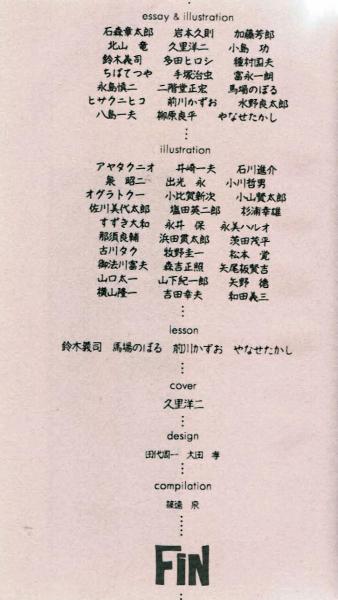 essay & illustration
石森章太郎 岩本久則 加藤芳郎
北山 竜 久里洋二 小島 功
鈴木義司 多田ヒロシ 種村国夫
ちばてつや 手塚治虫 富永一朗
永島慎二 二階堂正宏 馬場のぼる
ヒサクニヒコ 前川かずお 水野良太郎
八島一夫 柳原良平 やなせたかし
illustration
アヤタクニオ 井崎一夫 石川進介
泉 昭二 出光 永 小川哲男
オグラトクー 小比賀新次 小山賢太郎
佐川美代太郎 塩田英二郎 杉浦幸雄
すずき大和 永井 保 永美ハルオ
那須良輔 浜田貫太郎 茨田茂平
古川タク 牧野圭一 松本 覚
御法川富夫 森吉正照 矢尾板賢吉
山口太一 山下紀一郎 矢野 徳
横山隆一 吉田幸夫 和田義三
lesson
鈴木義司 馬場のぼる 前川かずお やなせたかし
cover
久里洋二
design
田代周一 大田 孝
compilation
篠遠 泉
FIN